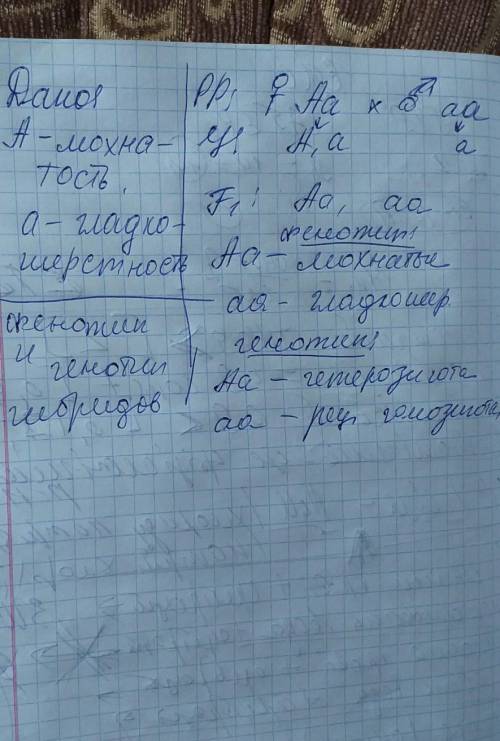 Дано:
А - мохна-
тость,
а - гладко-
шерстность
Фенотип
и генотип
гибридов
РР: ♀ Аа х ♂ аа
G: А, а а
F₁: Аа, аа
фенотип:
Аа - мохнатые
аа - гладкошер.
генотип:
Аа - гетерозигота
аа - рец. гомозигота